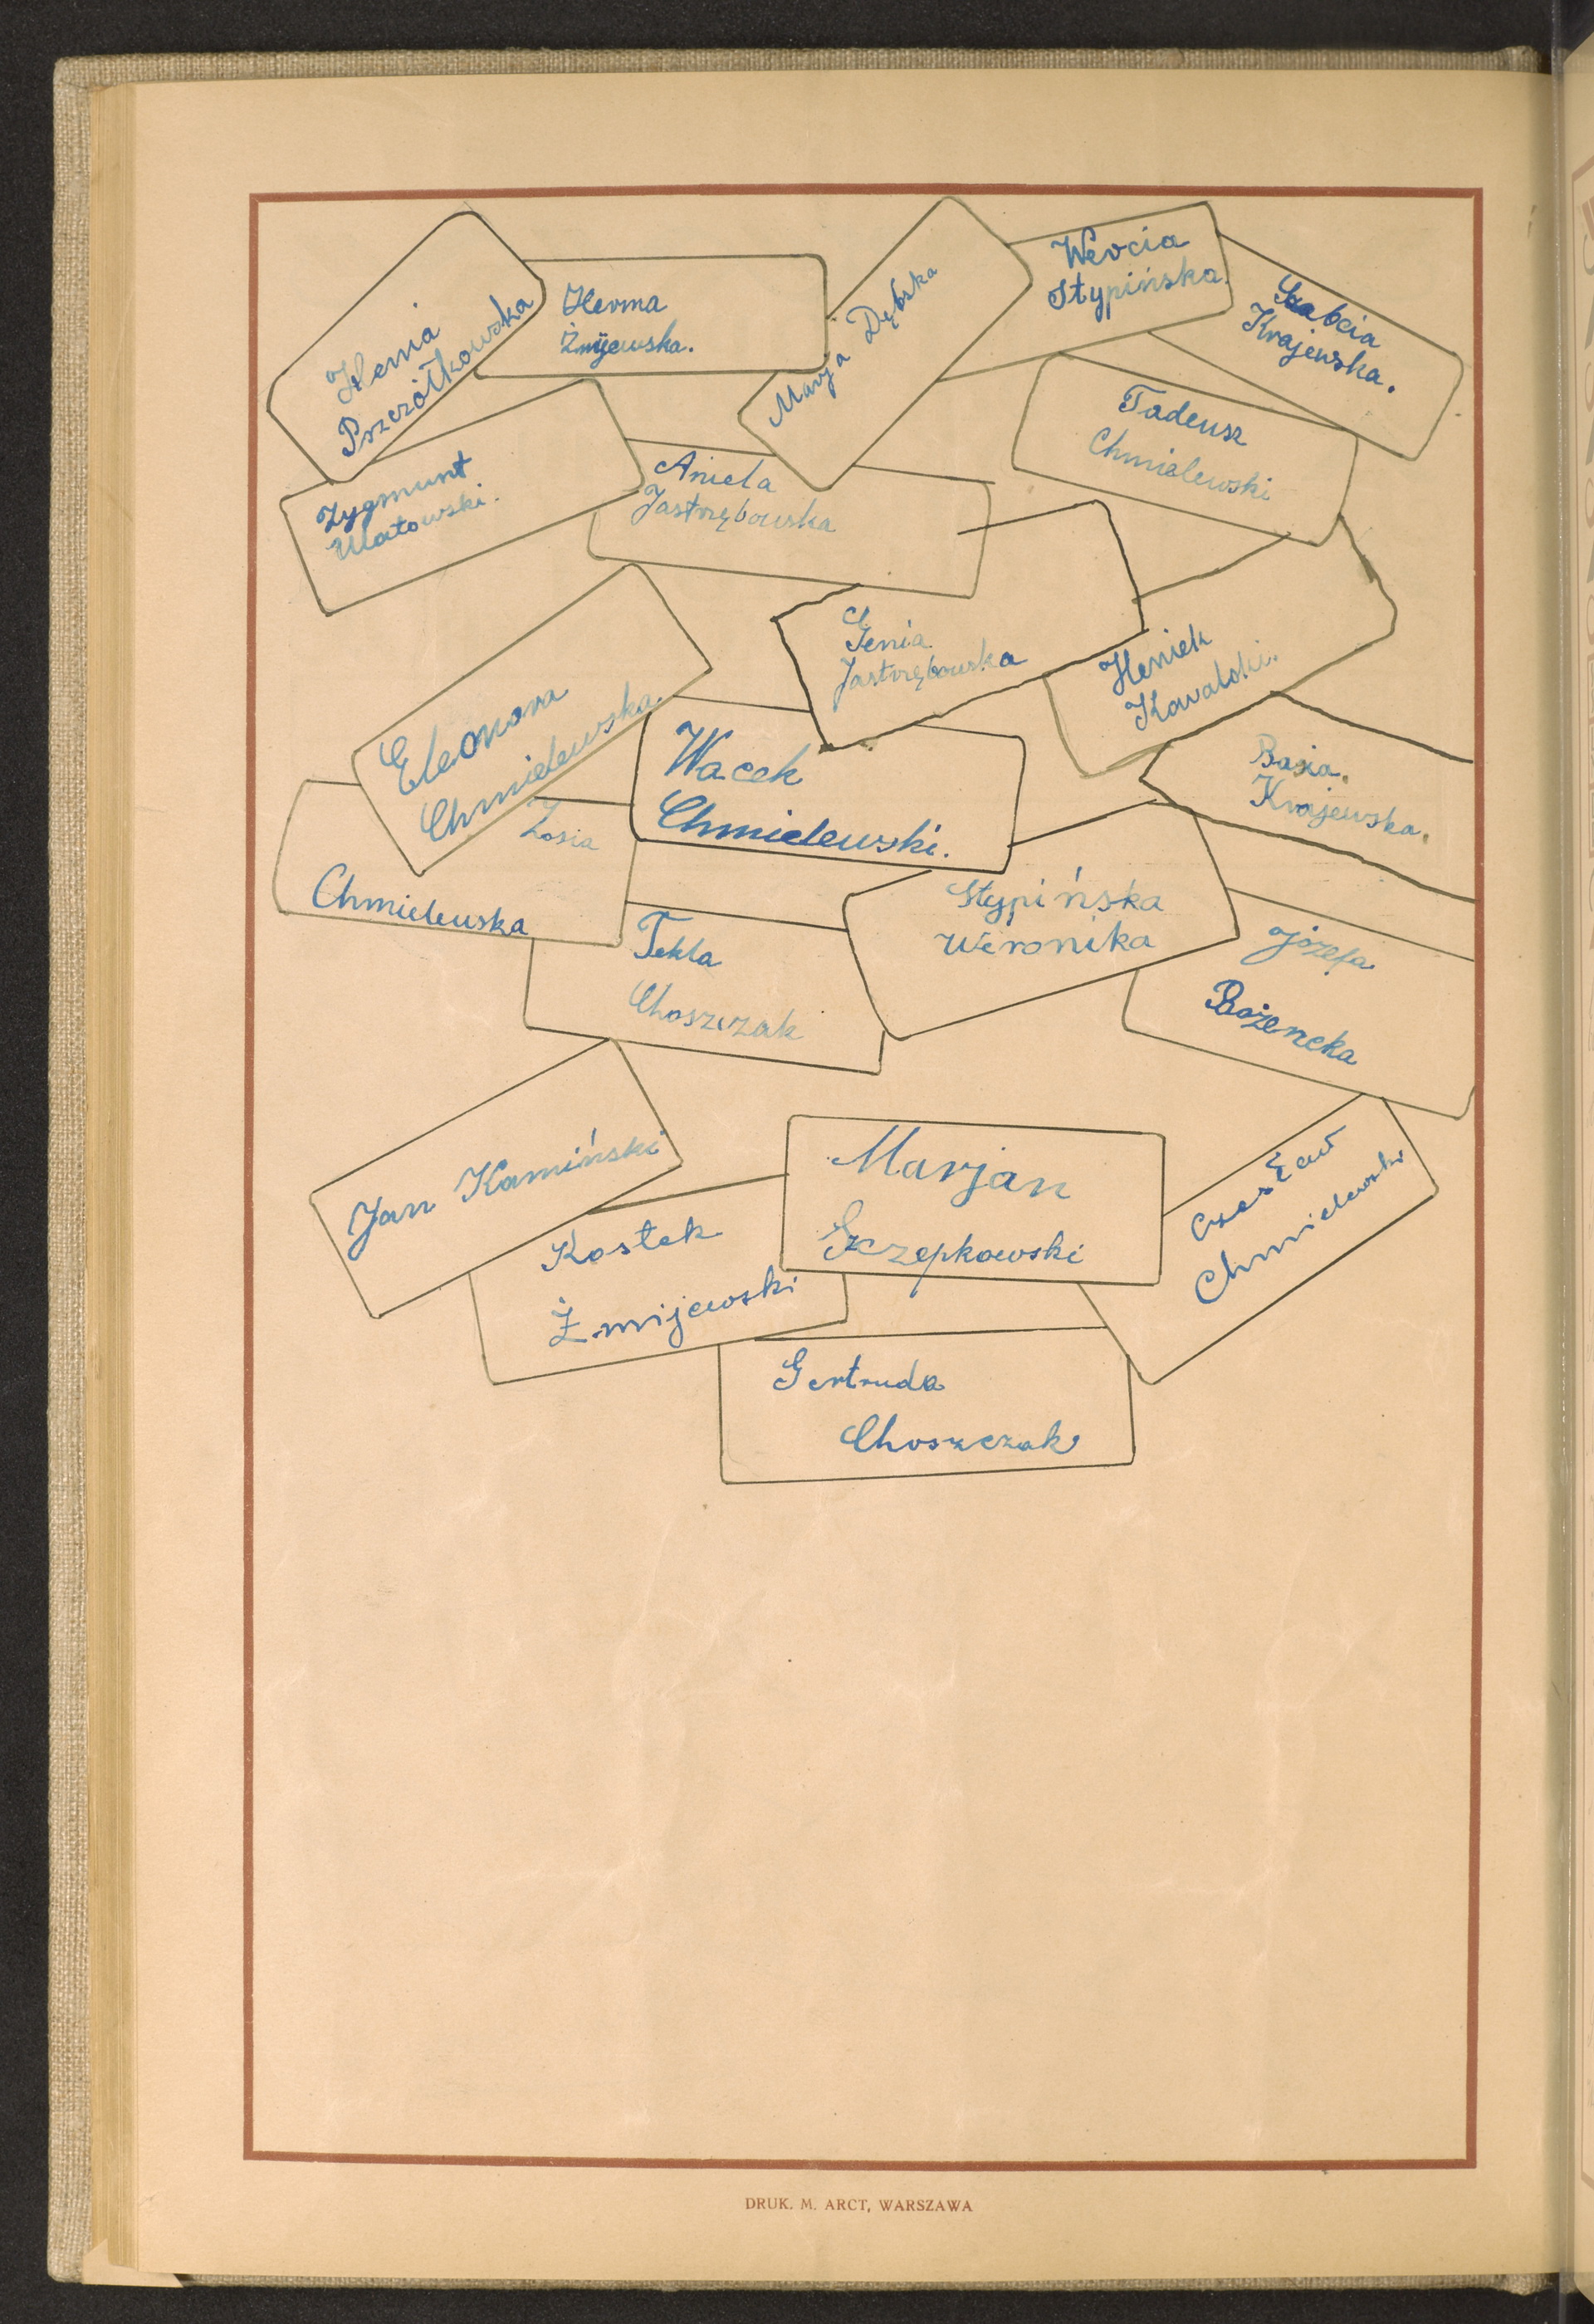 Henia
Pszczółkowska
Herma
Żmijewska.
Marja Dębska
Wercia
Stypińska.
Sabcia
Krajewska.
Zygmunt
Ulatowski.
Aniela
Jastrzębowska
Tadeusz
Chmielewski
Genia
Jastrzębowska
Heniek
Kowalski.
Eleonora
Chmielewska.
Wacek
Chmielewski.
Basia.
Krajewska.
Zosia
Chmielewska
Tekla
Choszczak
Stypińska
Weronika
Józefa
Bożencka
Jan Kamiński
Kostek
Żmijewski
Marjan
Szczepkowski
Czesław
Chmielewski
Gertruda
Choszczak
DRUK. M. ARCT, WARSZAWA